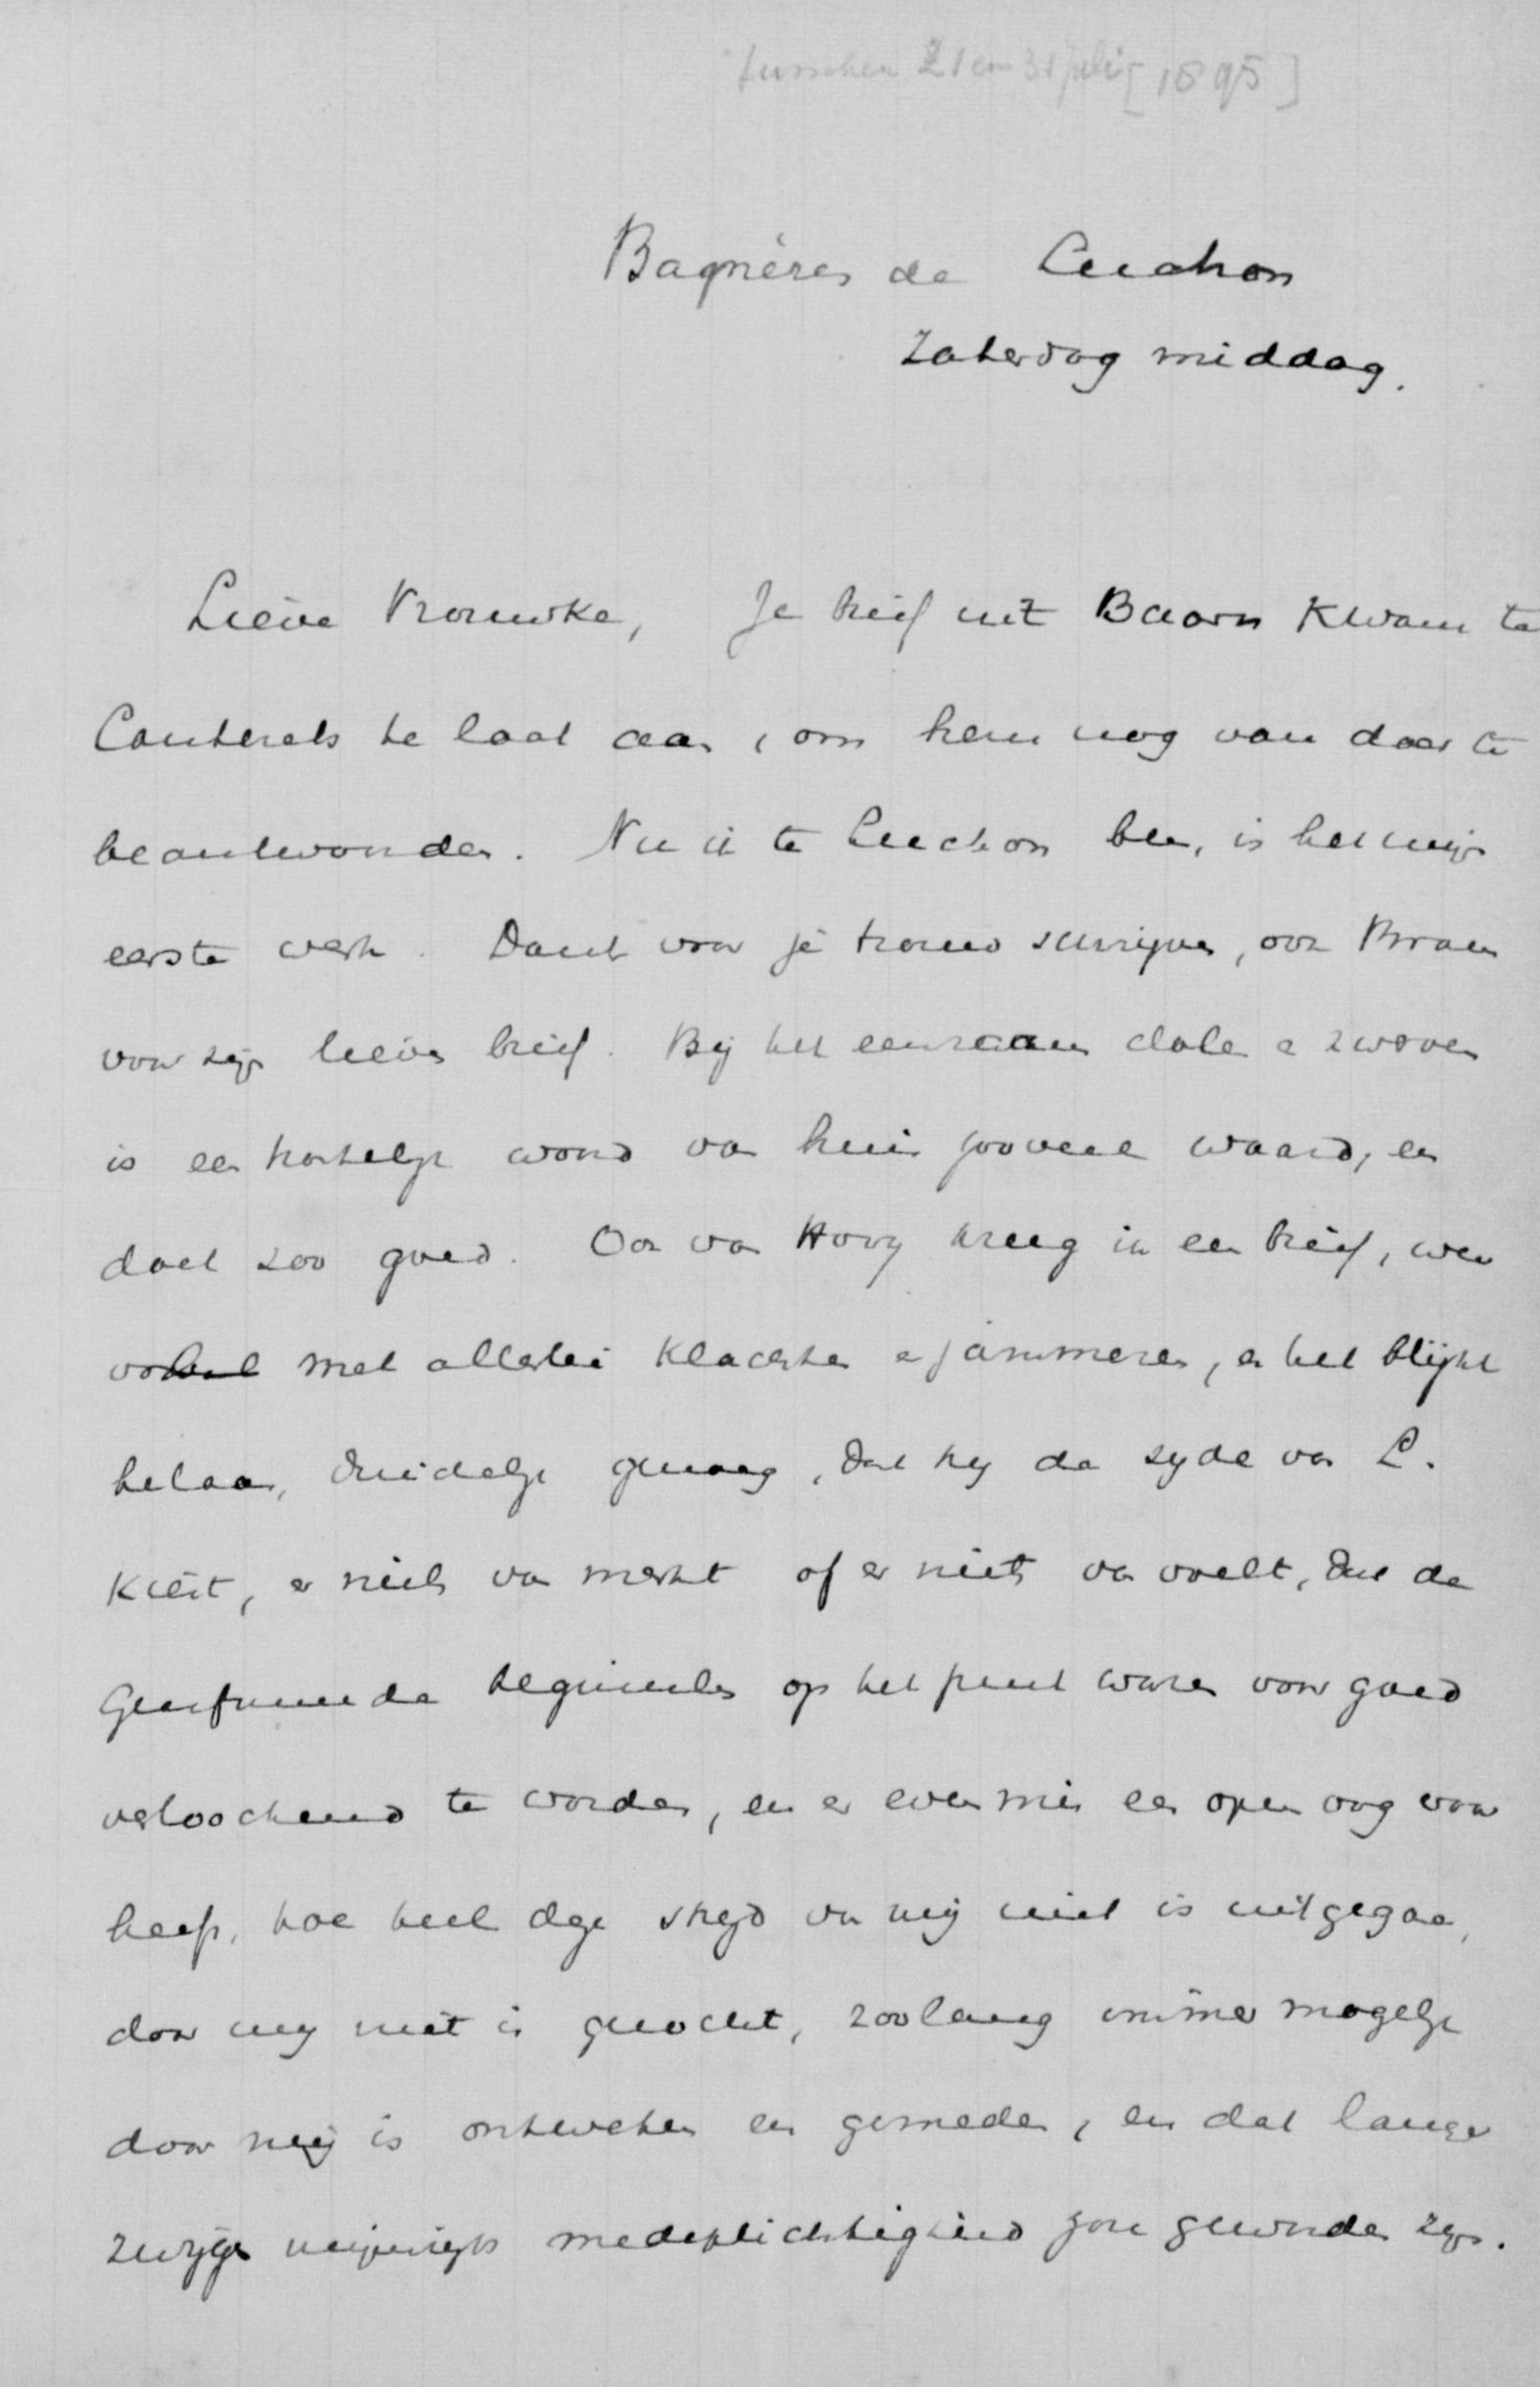 tusschen 21 en 31 Juli [1895]
Bagnères de Luchon
Zaterdag middag.
Lieve Vrouwke, Je brief uit Baarn kwam te
Cauterets te laat aan, om hem nog van daar te
beantwoorden. Nu ik te Luchon ben, is het mijn
eerste werk. Dank voor je trouw schrijven, ook Bram
voor zijn lieven brief. Bij het eenzaam dolen en zwerven
is een hartelijk woord van huis zooveel waard, en
doet zoo goed. Ook van Hovy kreeg ik een brief, wel
met allerlei klachten en jammeren, en het blijkt
helaas, duidelijk genoeg, dat hij de zijde van L.
kiest, er niets van merkt of er niets van voelt, dat de
Geref. beginselen op het punt waren voor goed
verloochend te worden, en er evenmin een open oog voor
heeft, hoe heel deze strijd van mij niet is uitgegaan,
door mij niet is gezocht, zoolang immer mogelijk
door mij is ontweken en gemeden, en dat langer
zwijgen mijnerzijds medeplichtigheid zou geworden zijn.